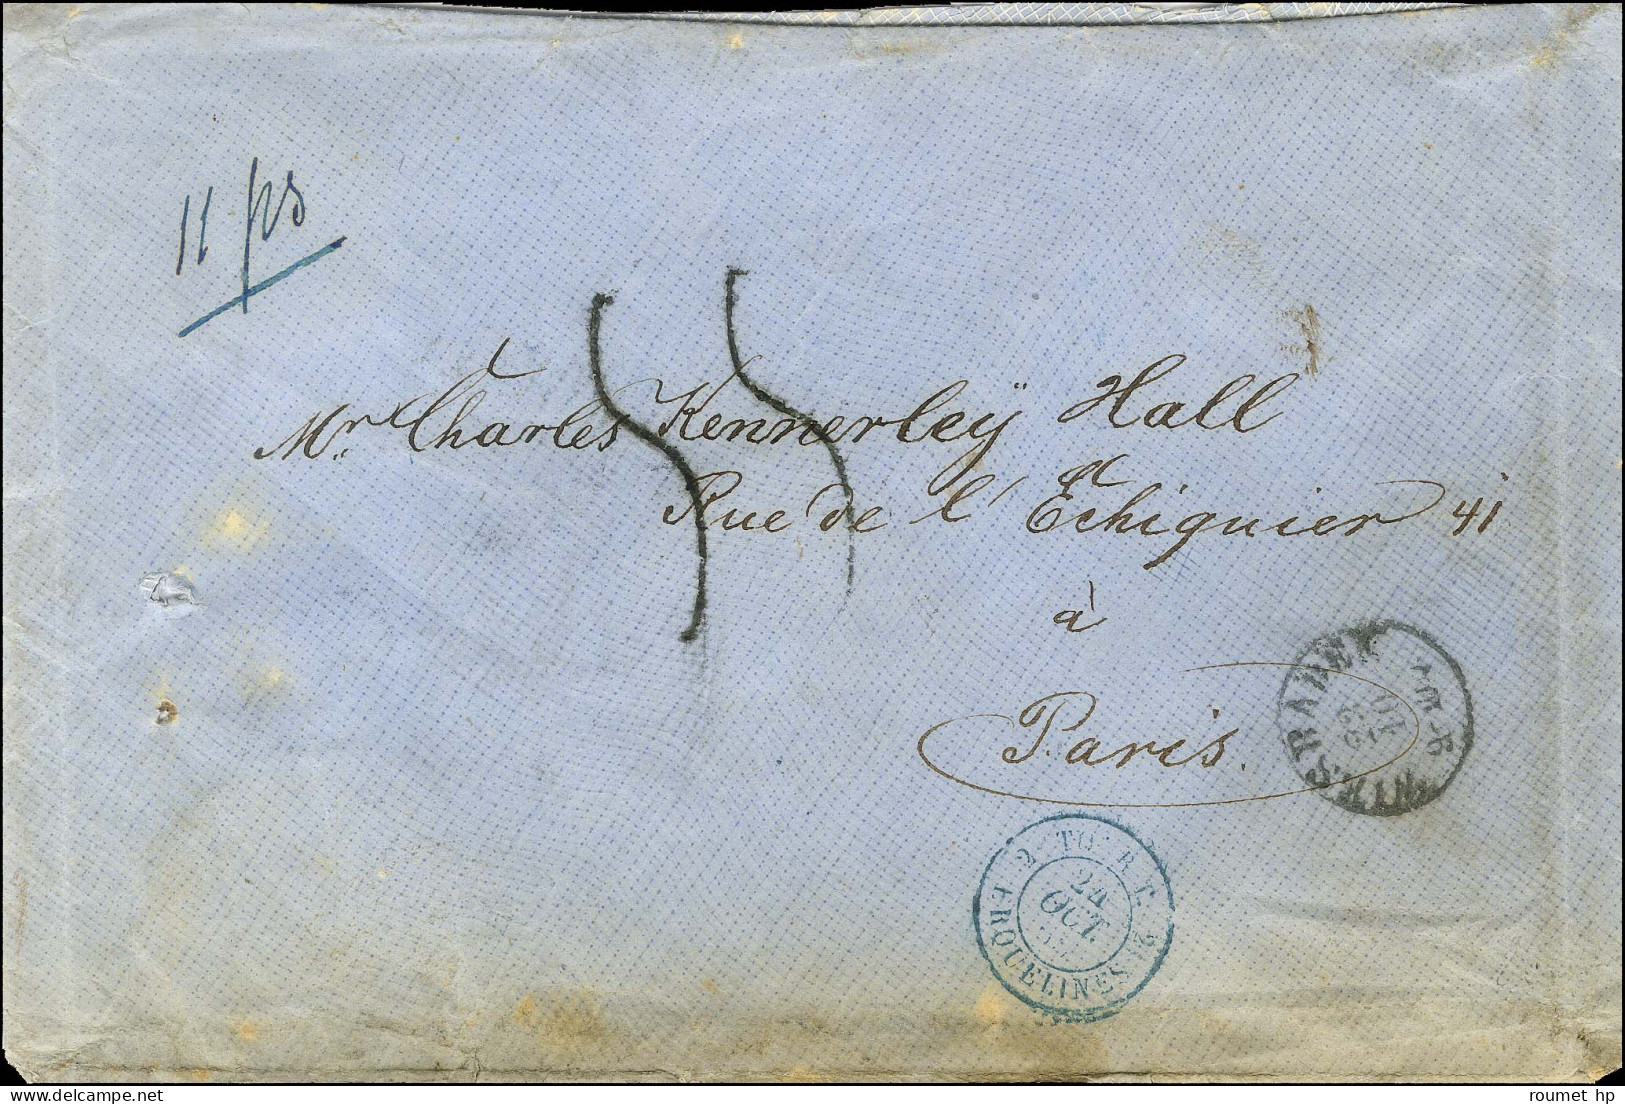 11 ps
Mr Charles Kennerleÿ Hall
Rue de l'Échiquier 41
à
Paris.
2 TOUR T.
24
OCT.
ERQUELINES 2
delcampe.net
roumet hp